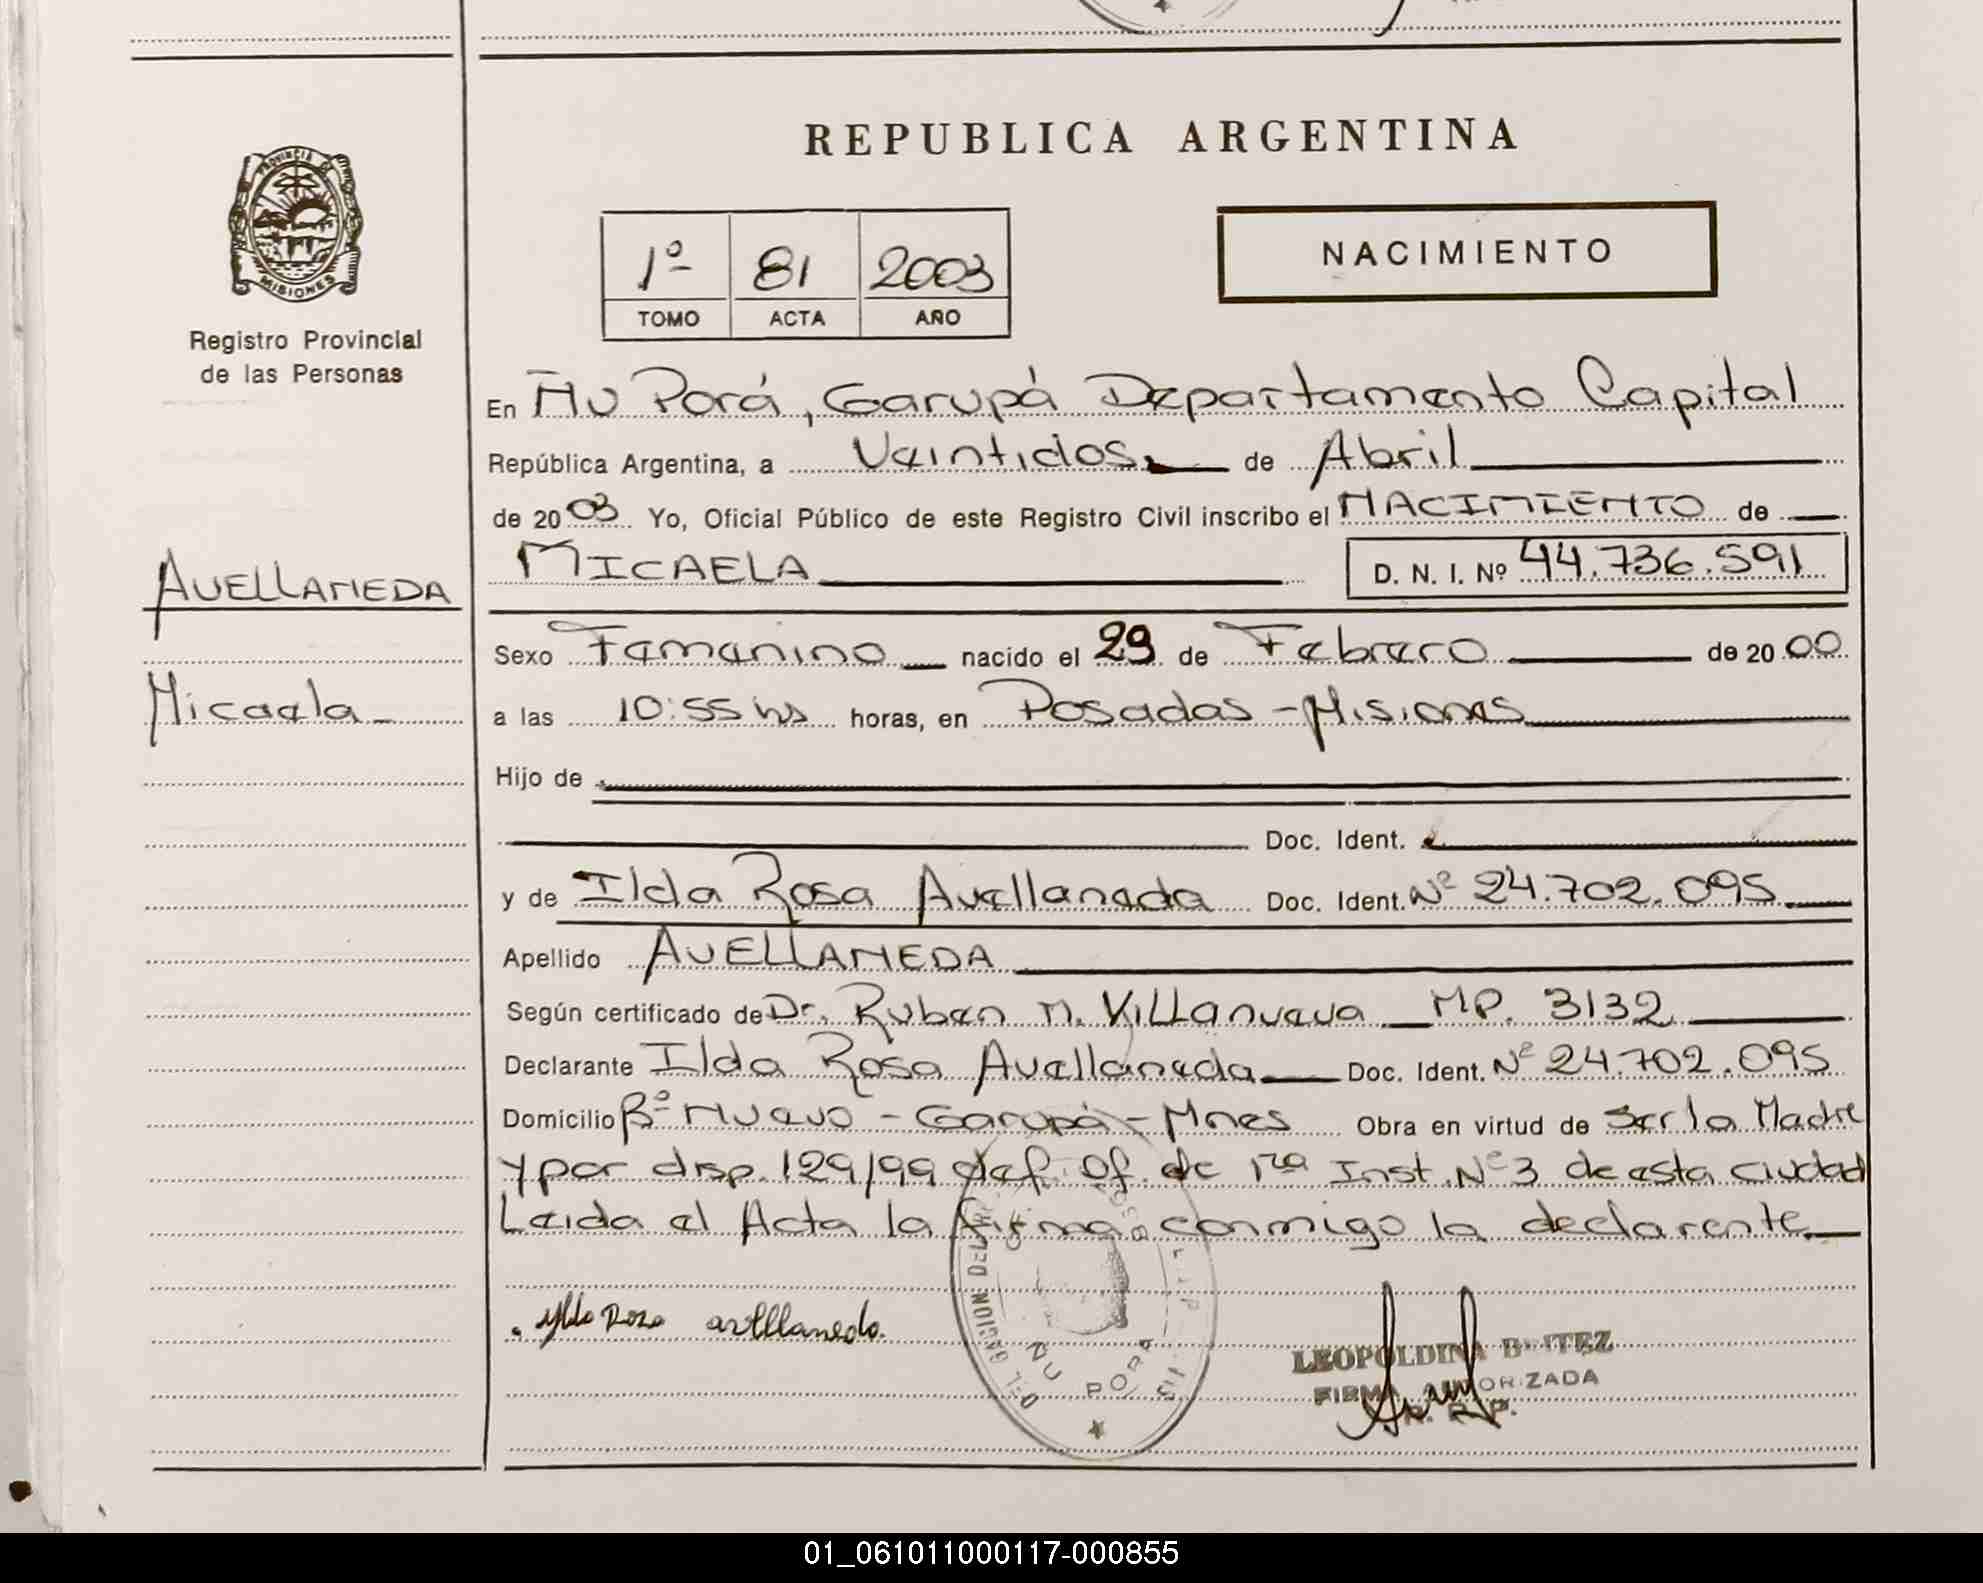 REPUBLICA ARGENTINA
PROVINCIA DE MISIONES
Registro Provincial
de las Personas
1º 81 2003
TOMO ACTA AÑO
NACIMIENTO
En Ñu Porá, Garupá Departamento Capital
República Argentina, a Veintidos de Abril
de 2003 Yo, Oficial Público de este Registro Civil inscribo el NACIMIENTO de
MICAELA D. N. I. Nº 44.736.591
AVELLANEDA
Micaela
Sexo Femenino nacido el 29 de Febrero de 2000
a las 10:55 hs horas, en Posadas - Misiones
Hijo de
Doc. Ident.
y de Ilda Rosa Avellaneda Doc. Ident. Nº 24.702.095
Apellido AVELLANEDA
Según certificado de Dr. Ruben N. Villanueva MP. 3132
Declarante Ilda Rosa Avellaneda Doc. Ident. Nº 24.702.095
Domicilio Bº Nuevo - Garupá - Mnes Obra en virtud de Ser la Madre
y por disp. 129/99 def. Of. de 1ra Inst. Nº 3 de esta ciudad
Leida el Acta la firma conmigo la declarente
avellaneda
ÑU PORA
LEOPOLDINA BENITEZ
FIRMA AUTORIZADA
R. P. P.
01_061011000117-000855